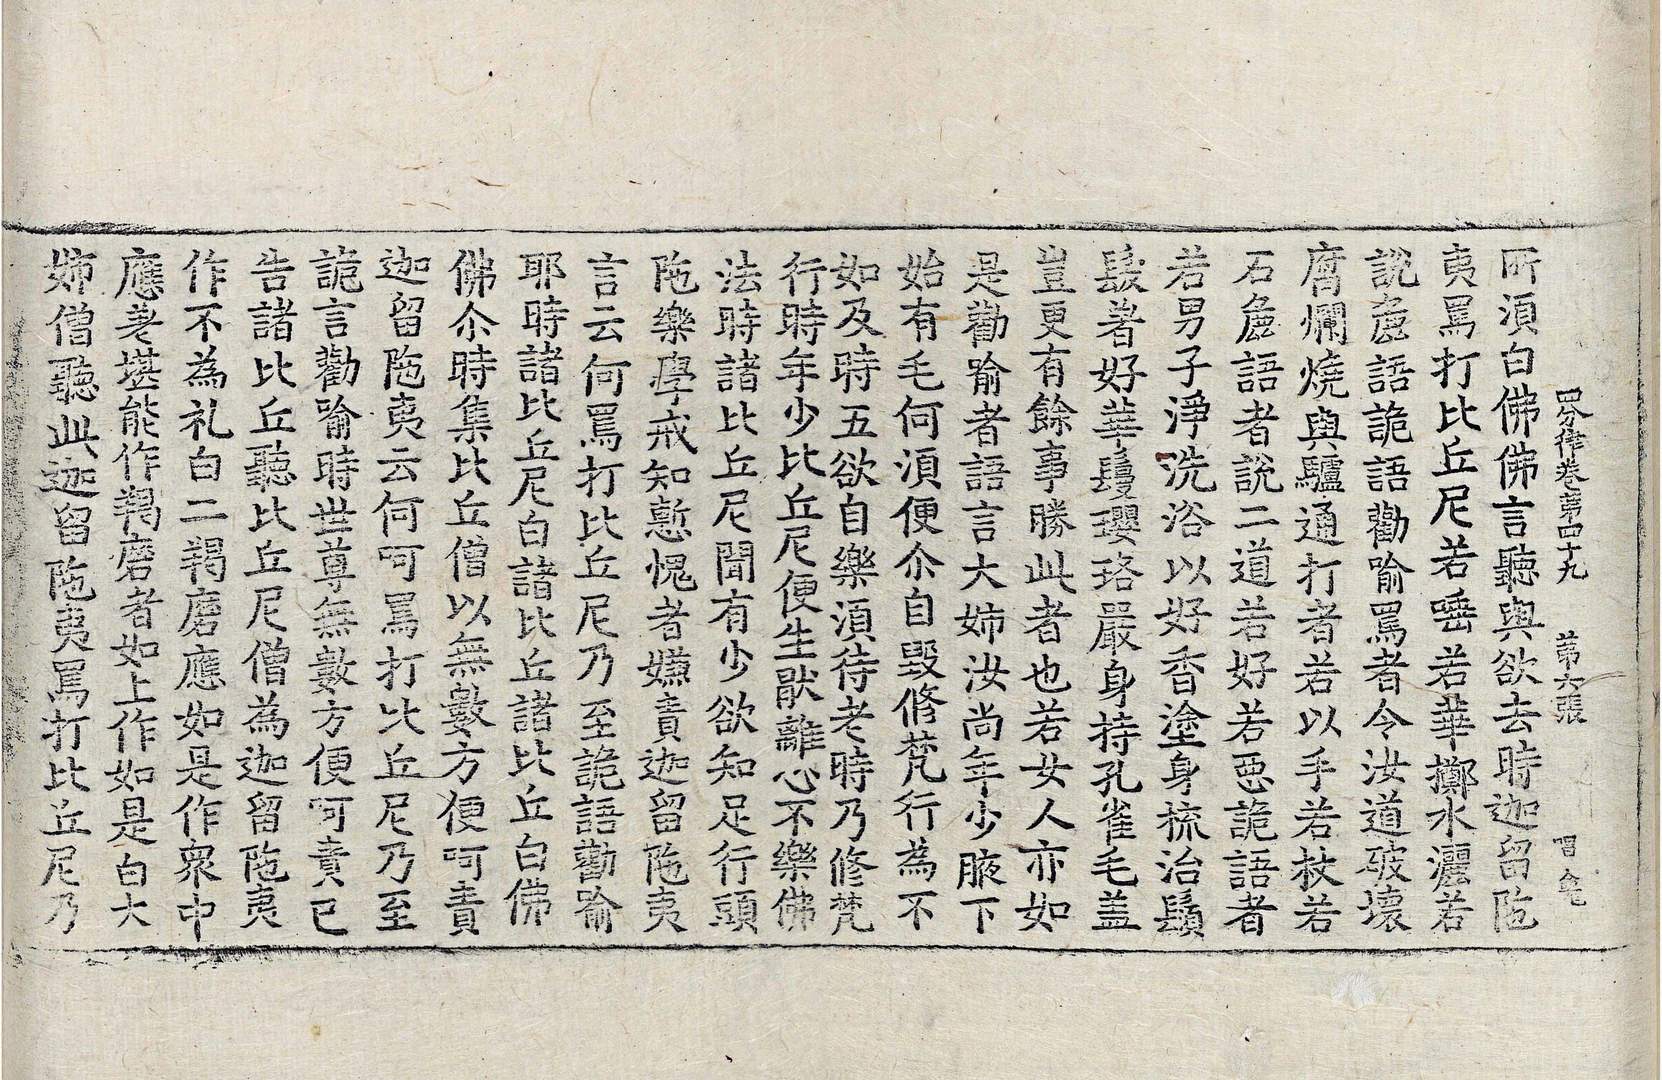 四分律卷第四十九　第六張
所湏白佛佛言聽與欲去時迦留陁
夷罵打比丘尼若唾若華擲水灑若
說麁語詭語勸喻罵者令汝道破壞
腐爛燒與驢通打者若以手若杖若
石麁語者說二道若好若惡詭語者
若男子淨洗浴以好香塗身梳治鬚
髮著好華鬘瓔珞嚴身持孔雀毛盖
豈更有餘事勝此者也若女人亦如
是勸喻者語言大姉汝尚年少腋下
始有毛何湏便尒自毀修梵行為不
如及時五欲自樂湏待老時乃修梵
行時年少比丘尼便生猒離心不樂佛
法時諸比丘尼聞有少欲知足行頭
陁樂學戒知慙愧者嫌責迦留陁夷
言云何罵打比丘尼乃至詭語勸喻
耶時諸比丘尼白諸比丘諸比丘白佛
佛尒時集比丘僧以無數方便呵責
迦留陁夷云何呵罵打比丘尼乃至
詭言勸喻時世尊無數方便呵責已
告諸比丘聽比丘尼僧為迦留陁夷
作不為礼白二羯磨應如是作衆中
應差堪能作羯磨者如上作如是白大
姉僧聽此迦留陁夷罵打比丘尼乃